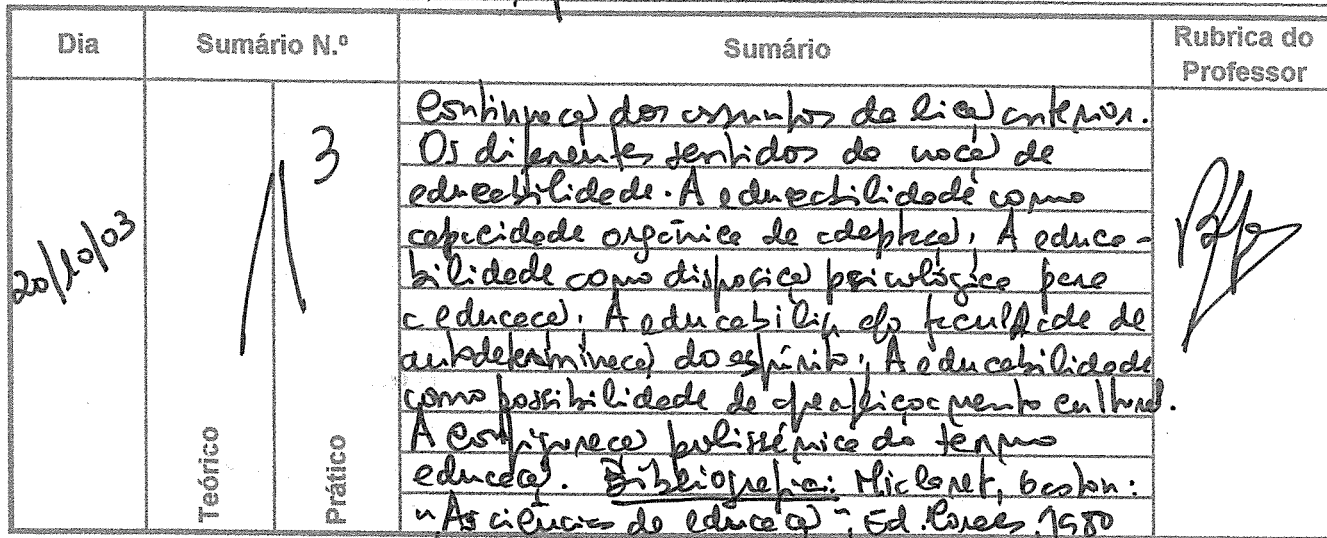 Dia Sumário N.º Sumário Rubrica do Professor
20/10/03
3
Teórico
Prático
Continuação dos assuntos da lição anterior.
Os diferentes sentidos da noção de
educabilidade. A educabilidade como
capacidade orgânica de adaptação; A educa-
bilidade como disposição psicológica para
a educação; A educabilid. cfo faculdade de
autodeterminação do espírito; A educabilidade
como possibilidade de aperfeiçoamento cultural.
A configuração polissémica do termo
educação. Bibliografia: Mialaret, Gaston:
"As ciências da educação", Ed. Moraes, 1980